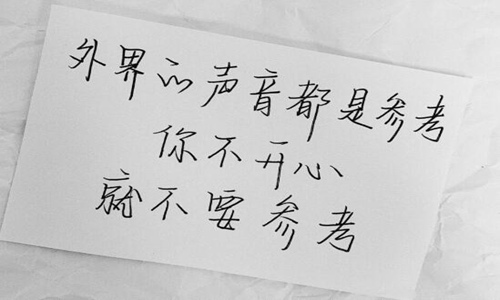 外界的声音都是参考
你不开心
就不要参考